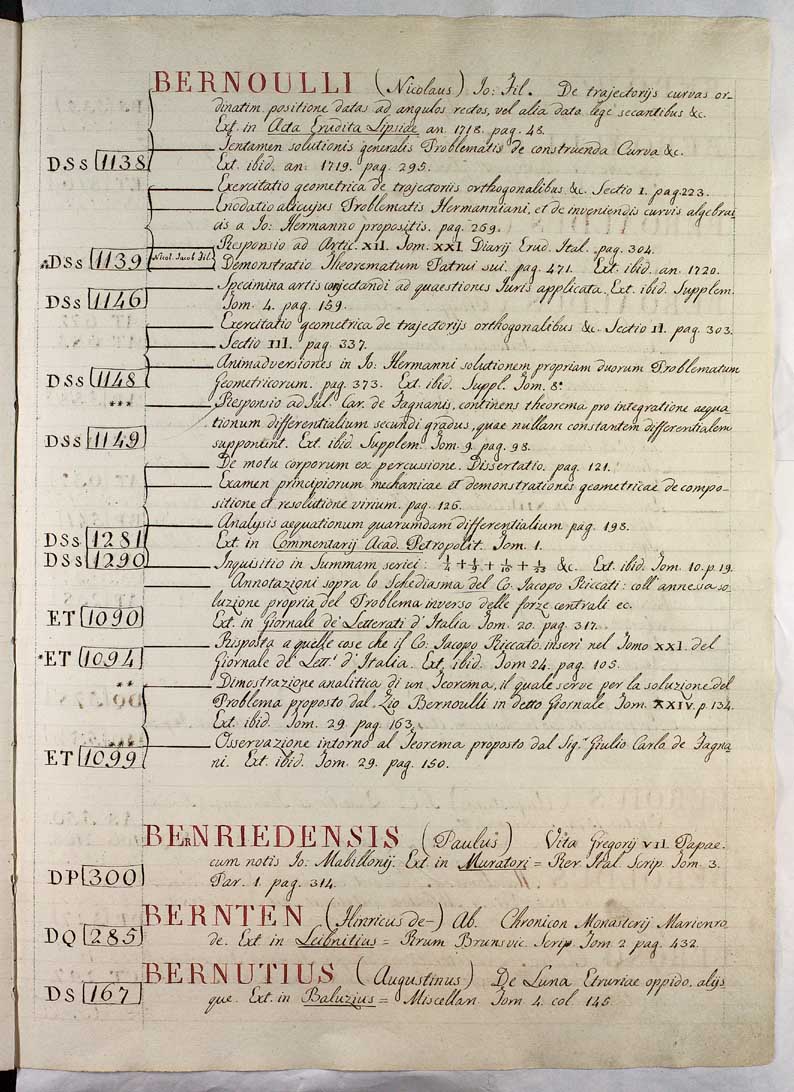 BERNOULLI (Nicolaus) Io: Fil. De trajectorijs curvas or-
dinatim positione datas ad angulos rectos, vel alia data lege secantibus &c.
Ext. in Acta Erudita Lipsiae an. 1718. pag. 48.
Tentamen solutionis generalis Problematis de construenda Curva &c.
DSs 1138 Ext. ibid. an: 1719. pag. 295.
Exercitatio geometrica de trajectoriis orthogonalibus &c. Sectio I. pag. 223.
Enodatio alicujus Problematis Hermanniani, et de inveniendis curvis algebrai
cis a Io: Hermanno propositis. pag. 269.
Responsio ad Artic. XII. Tom. XXI Diarij Erud. Ital. pag. 304.
DSs 1139 Nicol. Jacob. Fil. Demonstratio Theorematum Patrui sui. pag. 471. Ext. ibid. an. 1720.
Specimina artis conjectandi ad quaestiones Iuris applicata. Ext. ibid. Supplem.
DSs 1146 Tom. 4. pag. 159.
Exercitatio geometrica de trajectorijs orthogonalibus &c. Sectio II. pag. 303.
Sectio III. pag. 337.
Animadversiones in Io: Hermanni solutionem propriam duorum Problematum
DSs 1148 Geometricorum. pag. 373. Ext. ibid. Suppl. Tom. 8.
*** Responsio ad Iul. Car. de Fagnanis, continens theorema pro integratione aequa-
tionum differentialium secundi gradus, quae nullam constantem differentialem
DSs 1149 supponunt. Ext. ibid. Supplem. Tom. 9. pag. 98.
De motu corporum ex percussione. Dissertatio. pag. 121.
Examen principiorum mechanicae et demonstrationes geometricae de compo-
sitione et resolutione virium. pag. 126.
Analysis aequationum quarumdam differentialium pag. 198.
DSs 1281 Ext. in Commentarij Acad. Petropolit. Tom. 1.
DSs 1290 Inquisitio in Summam seriei: &c. Ext. ibid. Tom. 10. p. 19.
Annotazioni sopra lo Schediasma del Co: Jacopo Riccati: coll' annessa so-
luzione propria del Problema inverso delle forze centrali ec.
ET 1090 Ext. in Giornale de' Letterati d' Italia Tom. 20. pag. 317.
Risposta a quelle cose che il Co: Iacopo Riccato inserì nel Tomo XXI. del
*ET 1094 Giornale de' Lett.i d' Italia. Ext. ibid. Tom 24. pag. 105.
** Dimostrazione analitica di un Teorema, il quale serve per la soluzione del
Problema proposto dal Zio Bernoulli in detto Giornale Tom. XXIV. p. 134.
Ext. ibid. Tom. 29. pag. 163.
*** Osservazione intorno al Teorema proposto dal Sig.r Giulio Carlo de Fagna-
ET 1099 ni. Ext. ibid. Tom. 29. pag. 150.
BERNRIEDENSIS (Paulus) Vita Gregorij VII. Papae.
cum notis Io: Mabillonij. Ext in Muratori = Rer Ital. Scrip. Tom. 3.
DP 300 Par. 1. pag. 314.
BERNTEN (Hinricus de-) Ab. Chronicon Monasterij Marienro
DQ 285 de. Ext in Leibnitius = Rerum Brunsvic. Scrip. Tom 2 pag. 432.
BERNUTIUS (Augustinus) De Luna Etruriae oppido. alijs
DS 167 que. Ext. in Baluzius = Miscellan. Tom 4. col 145.